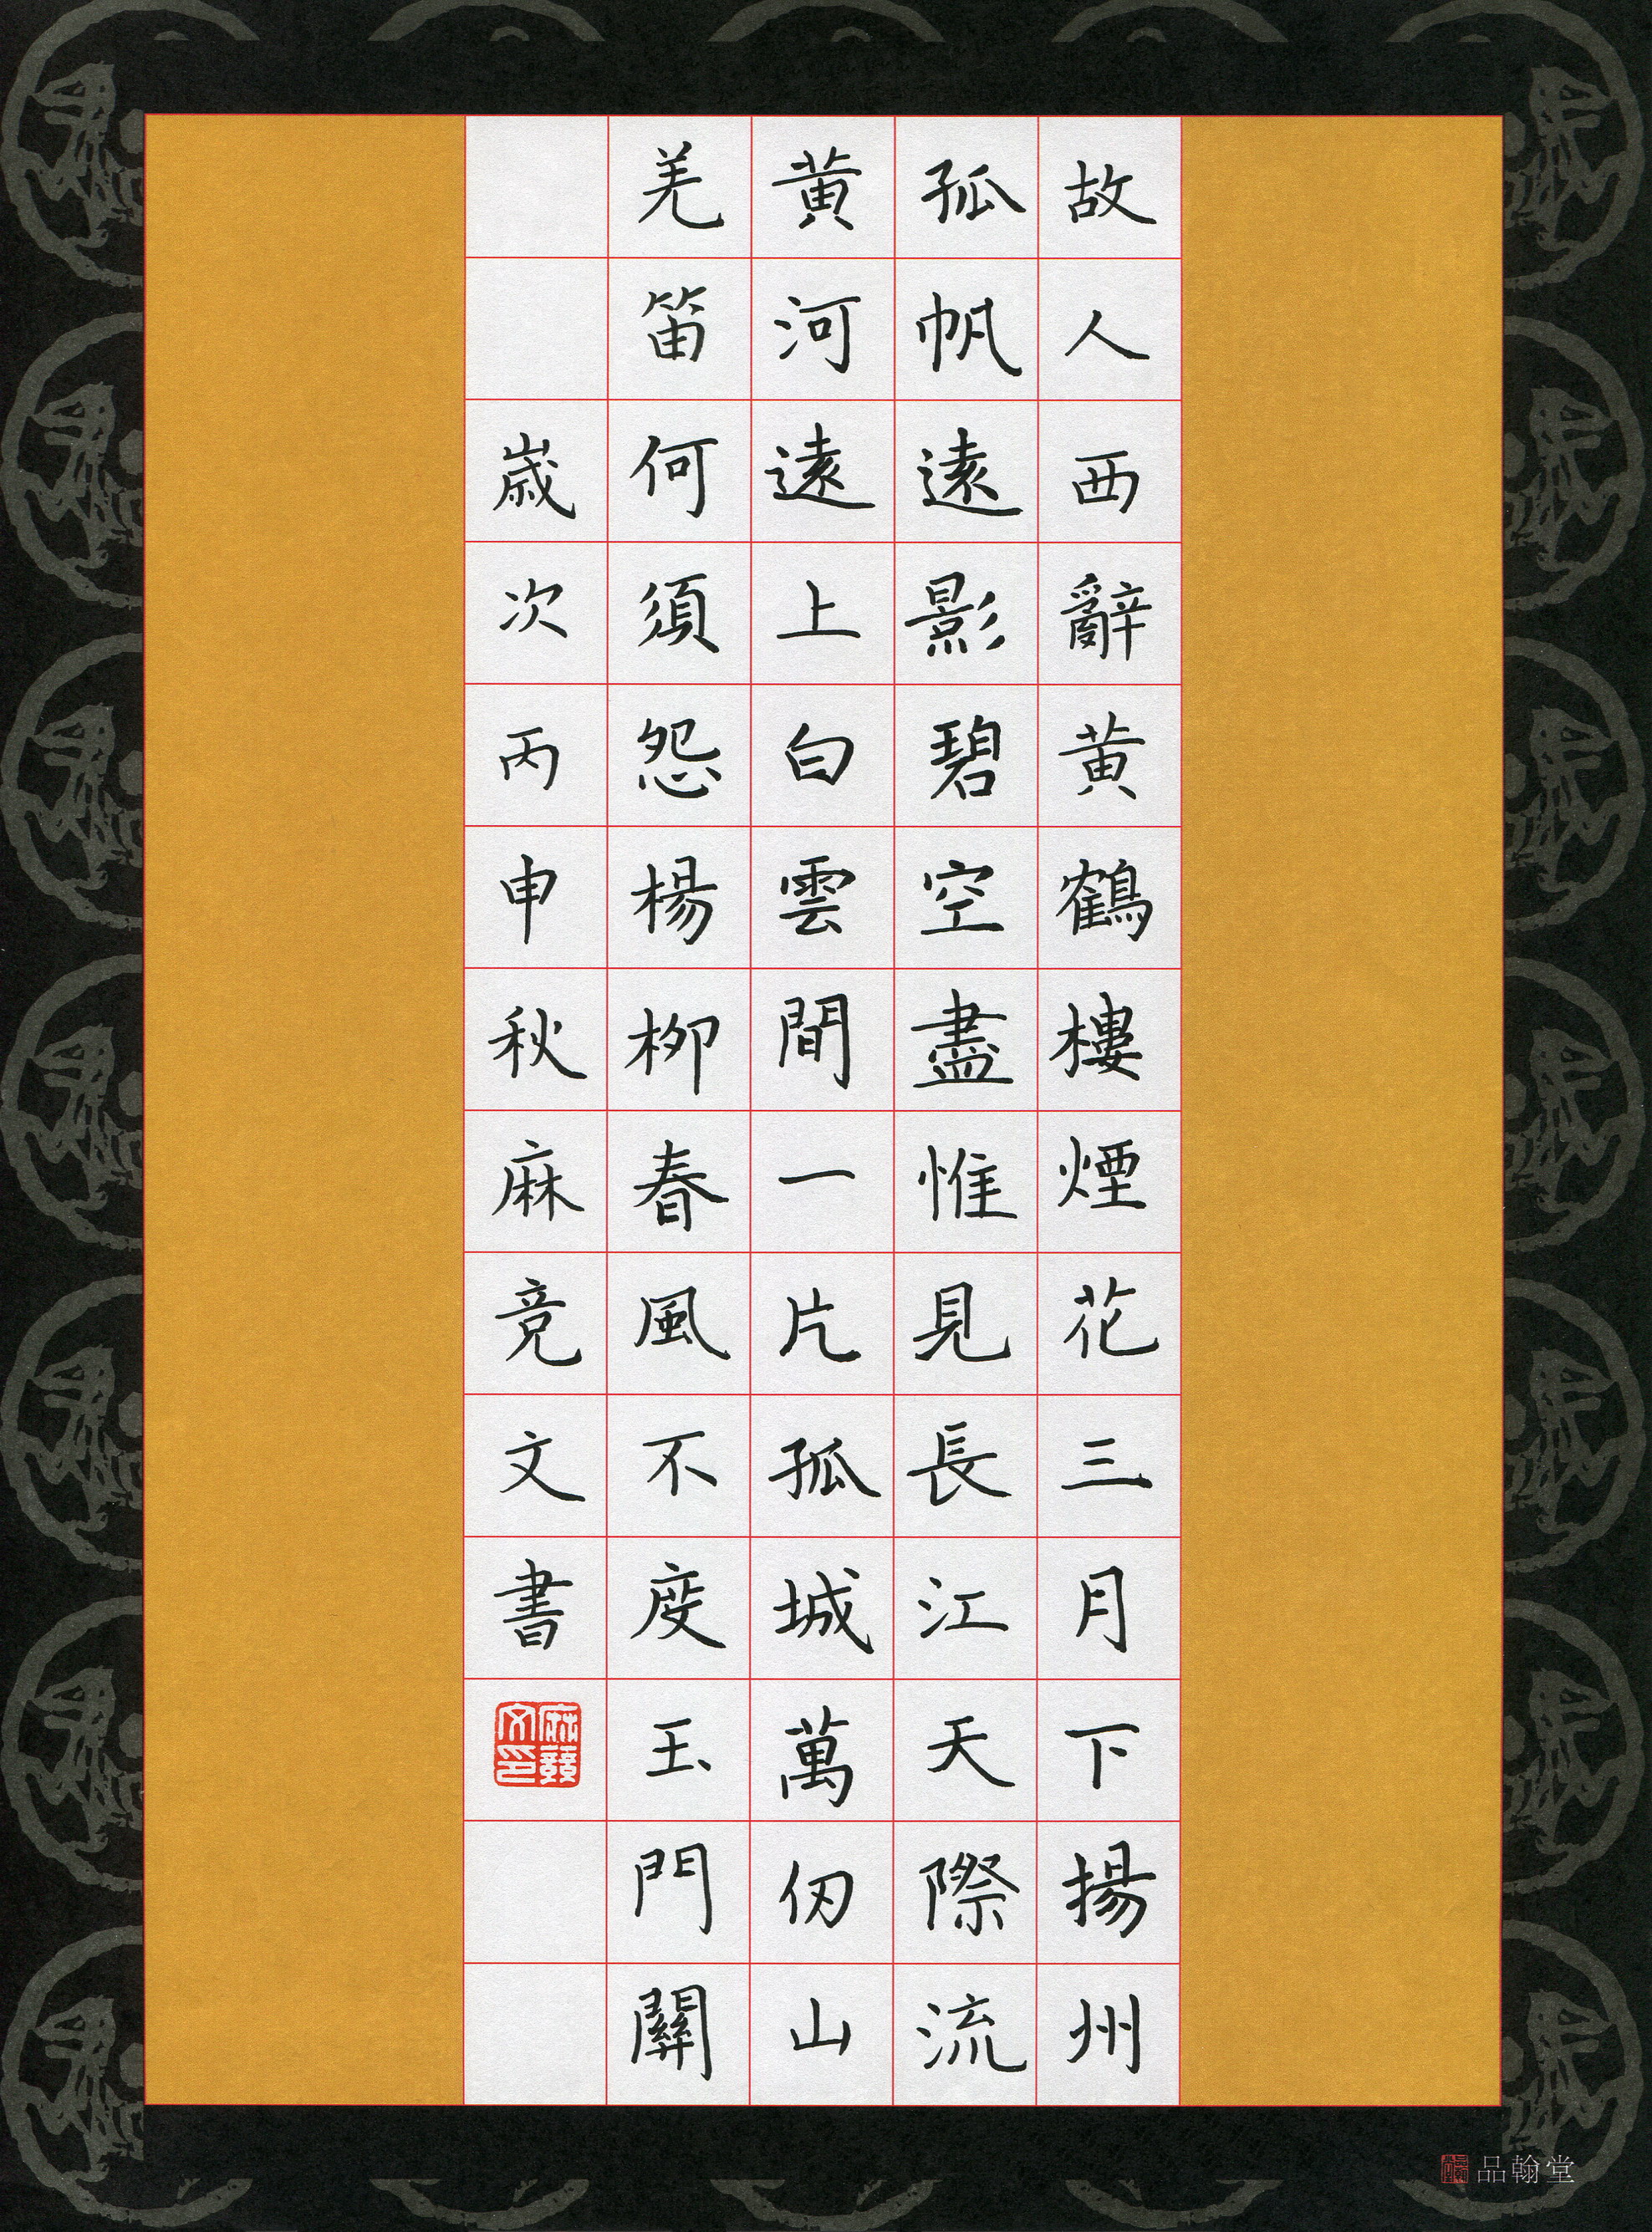 故人西辭黄鶴樓煙花三月下揚州
孤帆遠影碧空盡惟見長江天際流
黄河遠上白雲間一片孤城萬仞山
羌笛何須怨楊柳春風不度玉門關
歲次丙申秋麻竞文書
麻競文印
品翰堂